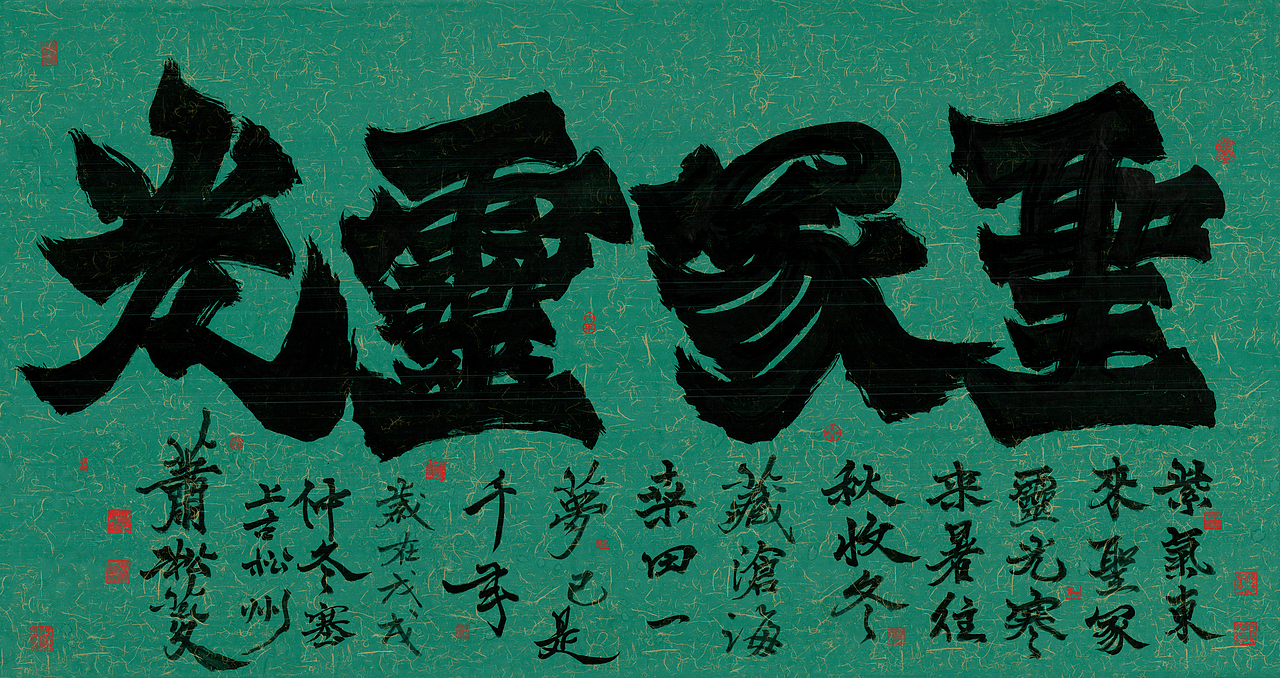 聖冢靈光
紫氣東
來聖冢
靈光寒
来暑往
秋收冬
藏滄海
桑田一
夢已是
千年
歲在戊戌
仲冬塞
上古松州
蕭